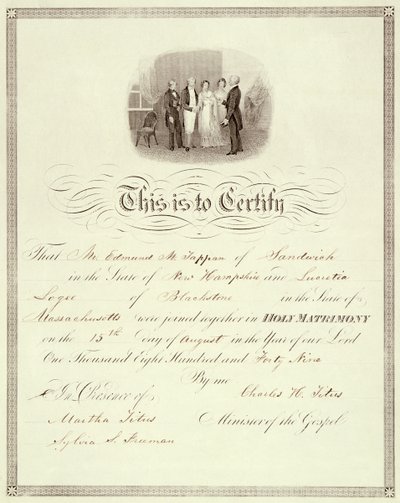 This is to Certify
That Mr Edmund M. Tappan of Sandwich
in the State of New Hampshire and Lucretia
Logee of Blackstone in the State of
Massachusetts were joined together in HOLY MATRIMONY
on the 15th day of August in the Year of our Lord
One Thousand Eight Hundred and Forty Nine
By me
In Presence of Charles H. Titus
Martha Titus Minister of the Gospel
Sylvia S. Freeman